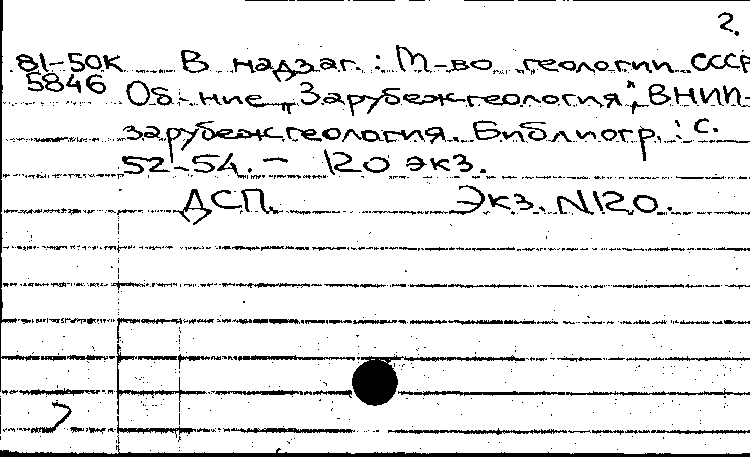 2.
81-50К В надзаг.: М-во геологии СССР
5846 Об-ние „Зарубежгеология", ВНИИ-
зарубежгеология. Библиогр.: с.
52-54. - 120 экз.
ДСП. Экз. N120.